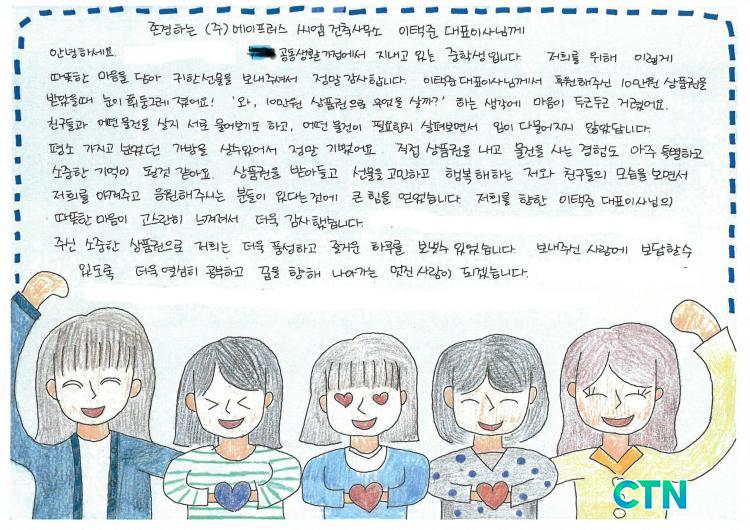 존경하는 (주) 에이프러스 씨엠 건축사무소 이택준 대표이사님께
안녕하세요. 공동생활가정에서 지내고 있는 중학생입니다. 저희를 위해 이렇게
따뜻한 마음을 담아 귀한선물을 보내주셔서 정말 감사합니다. 이택준 대표이사님께서 후원해주신 10만원 상품권을
받았을때 눈이 휘둥그레 졌어요! '와, 10만원 상품권으로 무엇을 살까?' 하는 생각에 마음이 두근두근 거렸어요.
친구들과 어떤물건을 살지 서로 물어보기도 하고, 어떤 물건이 필요한지 살펴보면서 입이 다물어지지 않았답니다.
평소 가지고 싶었던 가방을 살수있어서 정말 기뻤어요. 직접 상품권을 내고 물건을 사는 경험도 아주 특별하고
소중한 기억이 될것 같아요. 상품권을 받아들고 선물을 고민하고 행복해하는 저와 친구들의 모습을 보면서
저희를 아껴주고 응원해주시는 분들이 있다는것에 큰 힘을 얻었습니다. 저희를 향한 이택준 대표이사님의
따뜻한마음이 고스란히 느껴져서 더욱 감사했습니다.
주신 소중한 상품권으로 저희는 더욱 풍성하고 즐거운 하루를 보낼수 있었습니다. 보내주신 사랑에 보답할수
있도록 더욱 열심히 공부하고 꿈을 향해 나아가는 멋진 사람이 되겠습니다.
CTN